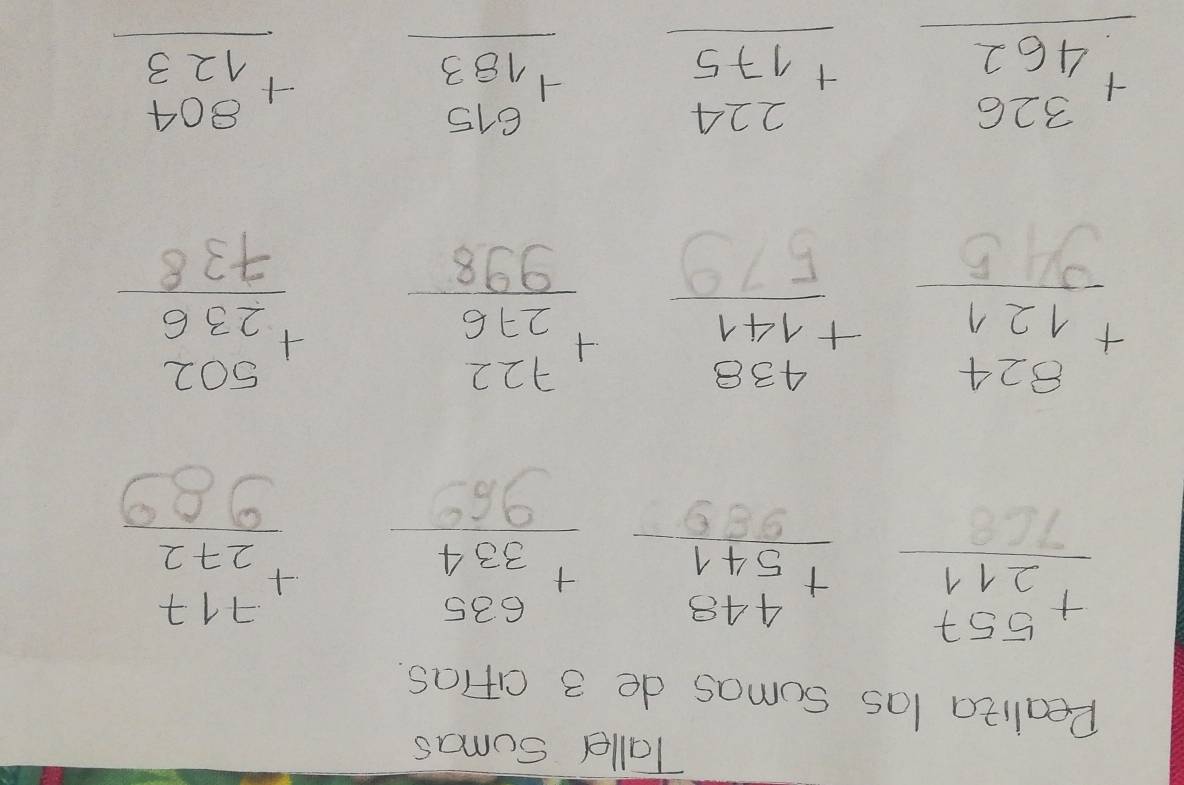 Taller Sumas
Realiza las sumas de 3 cifras.
557 448 635 717
+ 211 + 541 + 334 + 272
768 989 969 989
824 438 722 502
+ 121 + 141 + 276 + 236
945 579 998 738
326 224 615 804
+ 462 + 175 + 183 + 123